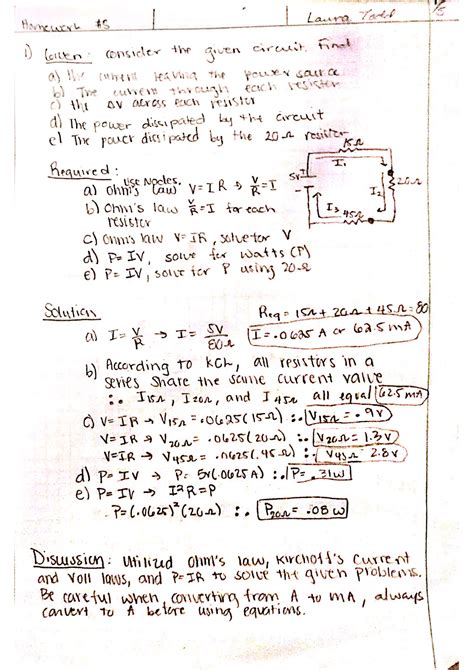 Homework #5
Laura
/5
1) Given: consider the given circuit. Find
a) the current leaving the power source
b) The current through each resistor
c) the ΔV across each resistor
d) The power dissipated by the circuit
e) The power dissipated by the 20Ω resistor
15Ω
I₁
5V
+
-
I₂
20Ω
I₃
45Ω
Required:
use Nodes.
a) Ohm's law V=IR → V/R=I
b) Ohm's law V/R=I for each
resistor
c) Ohm's law V=IR, solve for V
d) P=IV, solve for watts (P)
e) P=IV, solve for P using 20Ω
Solution
Req = 15Ω + 20Ω + 45Ω = 80
a) I = V/R → I = 5V/80Ω I = .0625 A or 62.5 mA
b) According to KCL, all resistors in a
series share the same current value
∴ I15Ω, I20Ω, and I45Ω all equal 62.5 mA
c) V=IR → V15Ω = .0625(15Ω) ∴ V15Ω = .9V
V=IR → V20Ω = .0625(20Ω) ∴ V20Ω = 1.3V
V=IR → V45Ω = .0625(45Ω) ∴ V45Ω = 2.8V
d) P=IV → P= 5V(.0625A) ∴ P= .31W
e) P=IV → I²R=P
P=(.0625)²(20Ω) ∴ P20Ω = .08W
Discussion: Utilized ohm's law, Kirchoff's current
and voll laws, and P=IR to solve the given problems.
Be careful when converting from A to mA, always
convert to A before using equations.